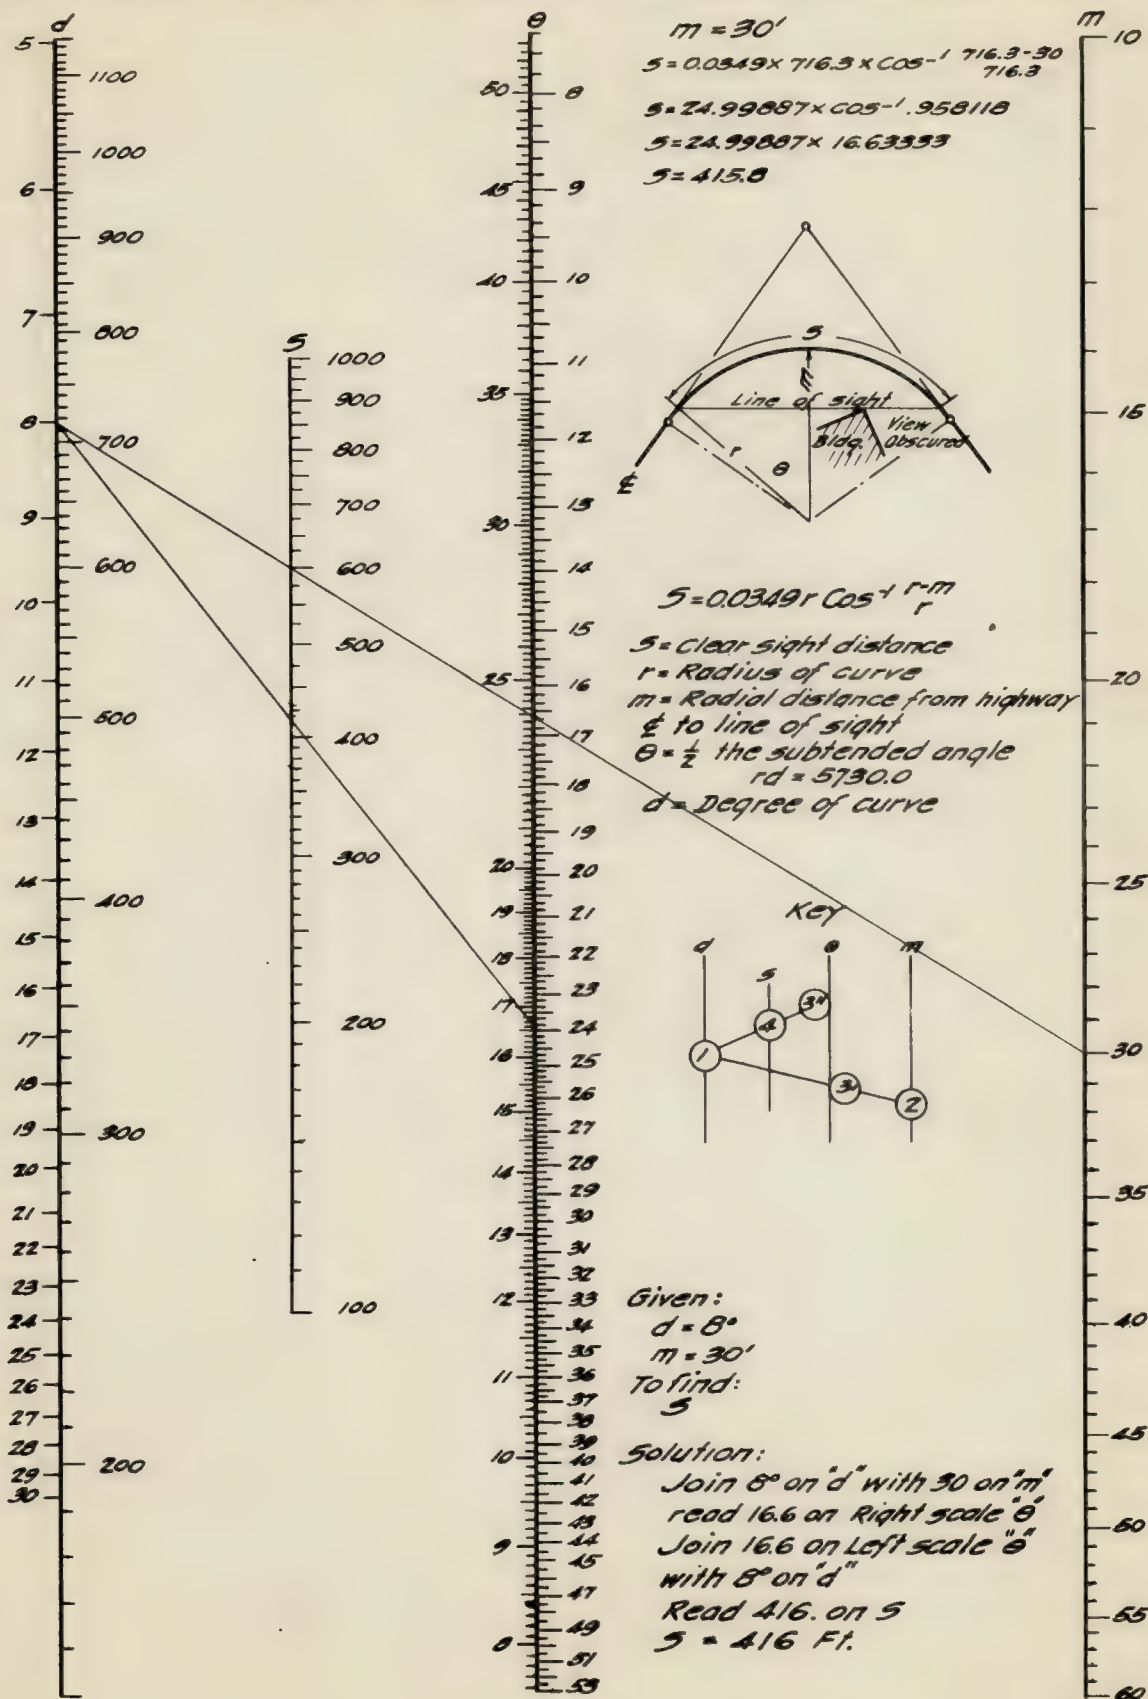 d
5
6
7
8
9
10
11
12
13
14
15
16
17
18
19
20
21
22
23
24
25
26
27
28
29
30
1100
1000
900
800
700
600
500
400
300
200
S
1000
900
800
700
600
500
400
300
200
100
θ
50
45
40
35
30
25
20
19
18
17
16
15
14
13
12
11
10
9
8
8
9
10
11
12
13
14
15
16
17
18
19
20
21
22
23
24
25
26
27
28
29
30
31
32
33
34
35
36
37
38
39
40
41
42
43
44
45
47
49
51
53
m = 30'
S = 0.0349 x 716.3 x COS-1 716.3-30
716.3
S = 24.99887 x COS-1 .958118
S = 24.99887 x 16.63333
S = 415.8
S
m
Line of sight
Bldg.
View
Obscured
r
θ
℄
S = 0.0349 r Cos-1 r-m
r
S = Clear sight distance
r = Radius of curve
m = Radial distance from highway
℄ to line of sight
θ = 1/2 the subtended angle
rd = 5730.0
d = Degree of curve
Key
d
S
θ
m
1
4
3"
3'
2
Given:
d = 8°
m = 30'
To find:
S
Solution:
Join 8° on "d" with 30 on "m"
read 16.6 on Right scale "θ"
Join 16.6 on Left scale "θ"
with 8° on "d"
Read 416. on S
S = 416 Ft.
m
10
15
20
25
30
35
40
45
50
55
60